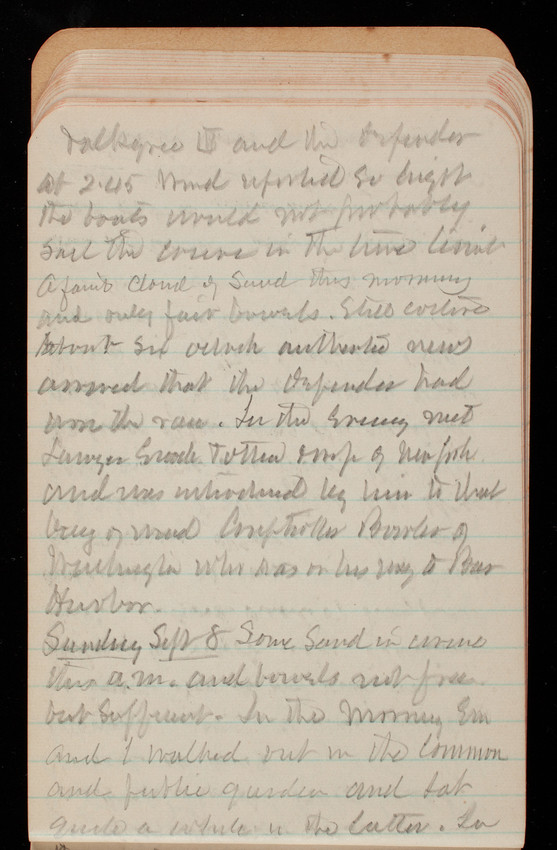 Valkyrie III and the Defender
at 2.45 Wind reported so light
the boats would not probably
sail the course in the time limit
A faint cloud of Sand this morning
and only fair bowels. Still costive
About six oclock authentic news
arrived that the Defender had
won the race. In the Evening met
Lawyer of New York
and was introduced by him to that
bag of wind Comptroller Bowler of
Washington who was on his way to Bar
Harbor.
Sunday Sept 8 Some Sand in urine
this a.m. and bowels not free
but sufficient. In the Morning Em
and I walked out in the Common
and public garden and sat
quite a while in the latter. In